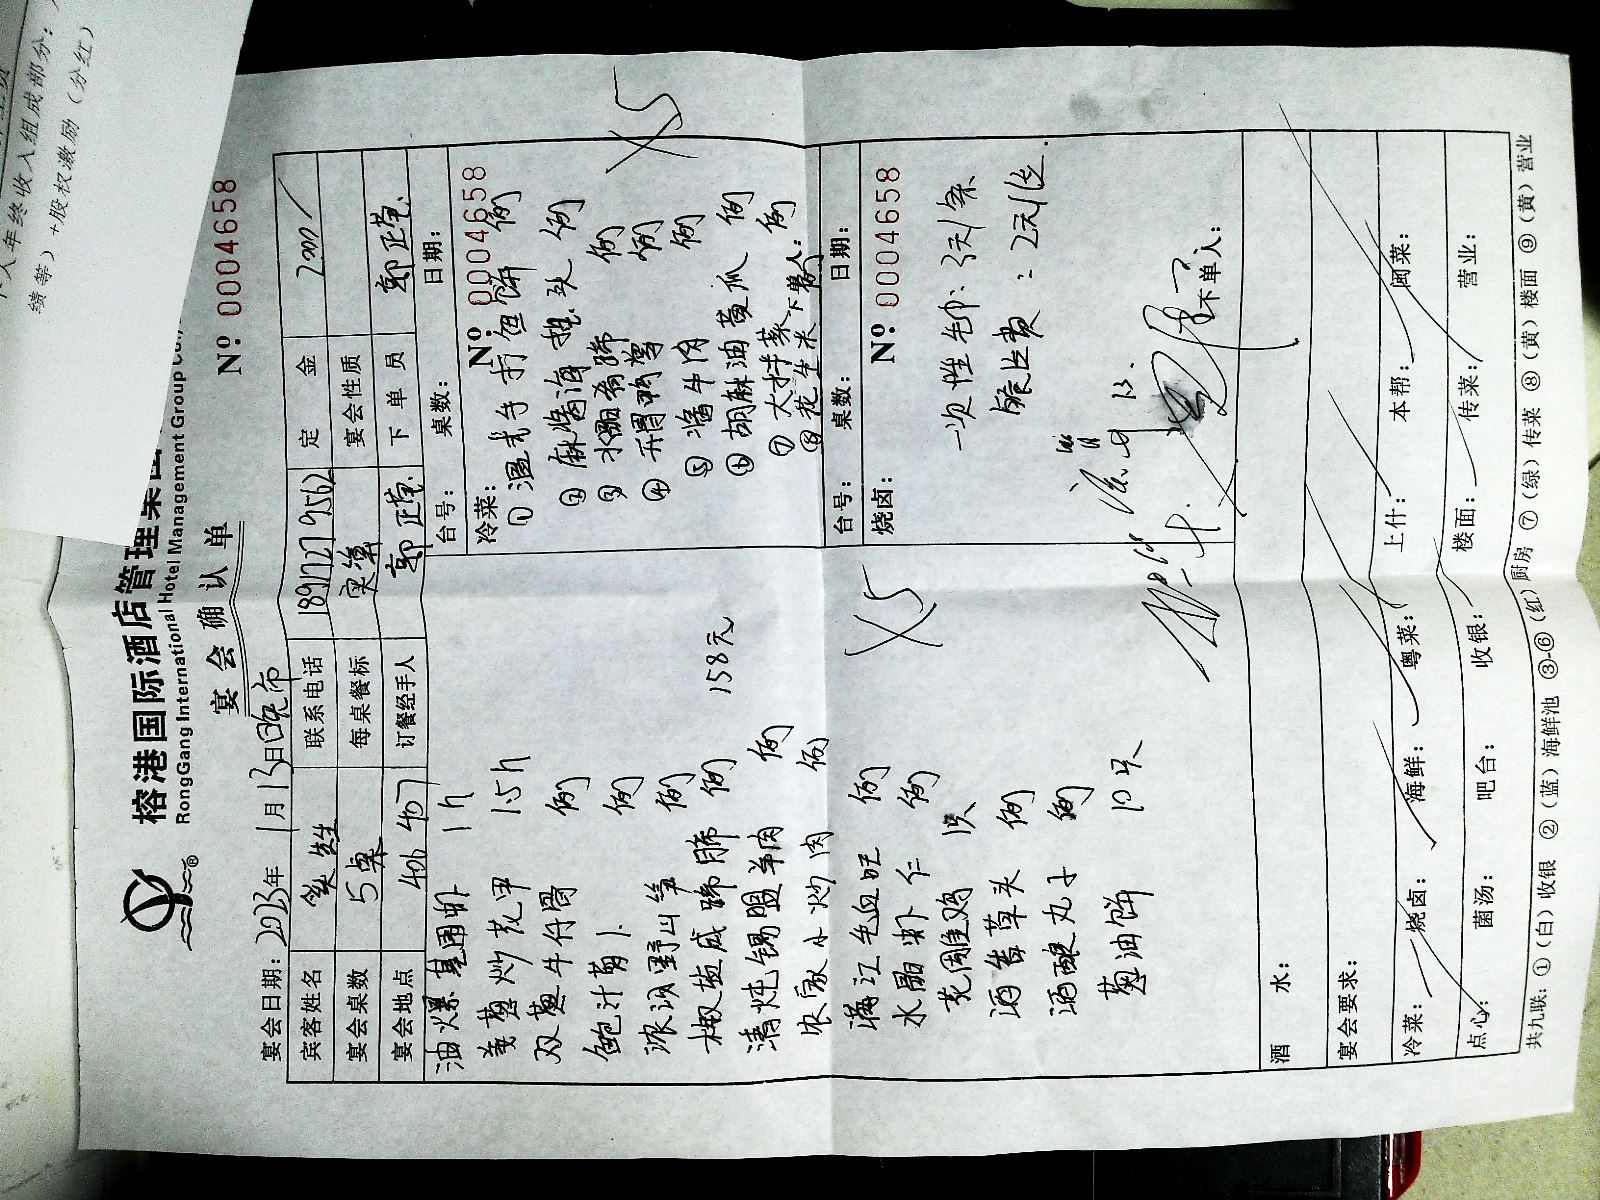 年终收入组成部分:
绩等）+股权激励（分红）
榕港国际酒店管理集团
RongGang International Hotel Management Group Co.,
宴会确认单
№ 0004658
宴会日期: 2023年 1月13日晚市
宾客姓名 联系电话 18917279562 定金 2000
宴会桌数 5桌 每桌餐标 宴会性质
宴会地点 406 407 订餐经手人 郭正 下单员 郭正
油爆基围虾 1斤
姜葱炒花甲 1.5斤
双葱牛仔骨 例
鲍汁萝卜 例
浓汤野山笋 例
椒盐咸蹄髈 例
158元
清炖锡盟羊肉 例
农家小炒肉 例
满江毛血旺 例
水晶虾仁 例
花雕鸡 1只
酒香草头 例
酒酿丸子 例
葱油饼 10只
X5
台号: 桌数: 日期:
冷菜: № 0004658
① 温式手打 饼 例
② 麻酱海蜇头 例
③ 水晶肴蹄 例
④ 开胃鸭掌 例
⑤ 酱牛肉 例
⑥ 胡麻油黄瓜 例
⑦ 大拌菜 例
⑧ 花生米 例
下单人:
X5
台号: 桌数: 日期:
烧卤: № 0004658
一次性毛巾: 3元/条
餐位费: 2元/位.
下单人:
酒 水:
宴会要求:
冷菜: 烧卤: 海鲜: 粤菜: 上什: 本帮: 闽菜:
点心: 菌汤: 吧台: 收银: 楼面: 传菜: 营业:
共九联: ①（白）收银 ②（蓝）海鲜池 ③-⑥（红）厨房 ⑦（绿）传菜 ⑧（黄）楼面 ⑨（黄）营业